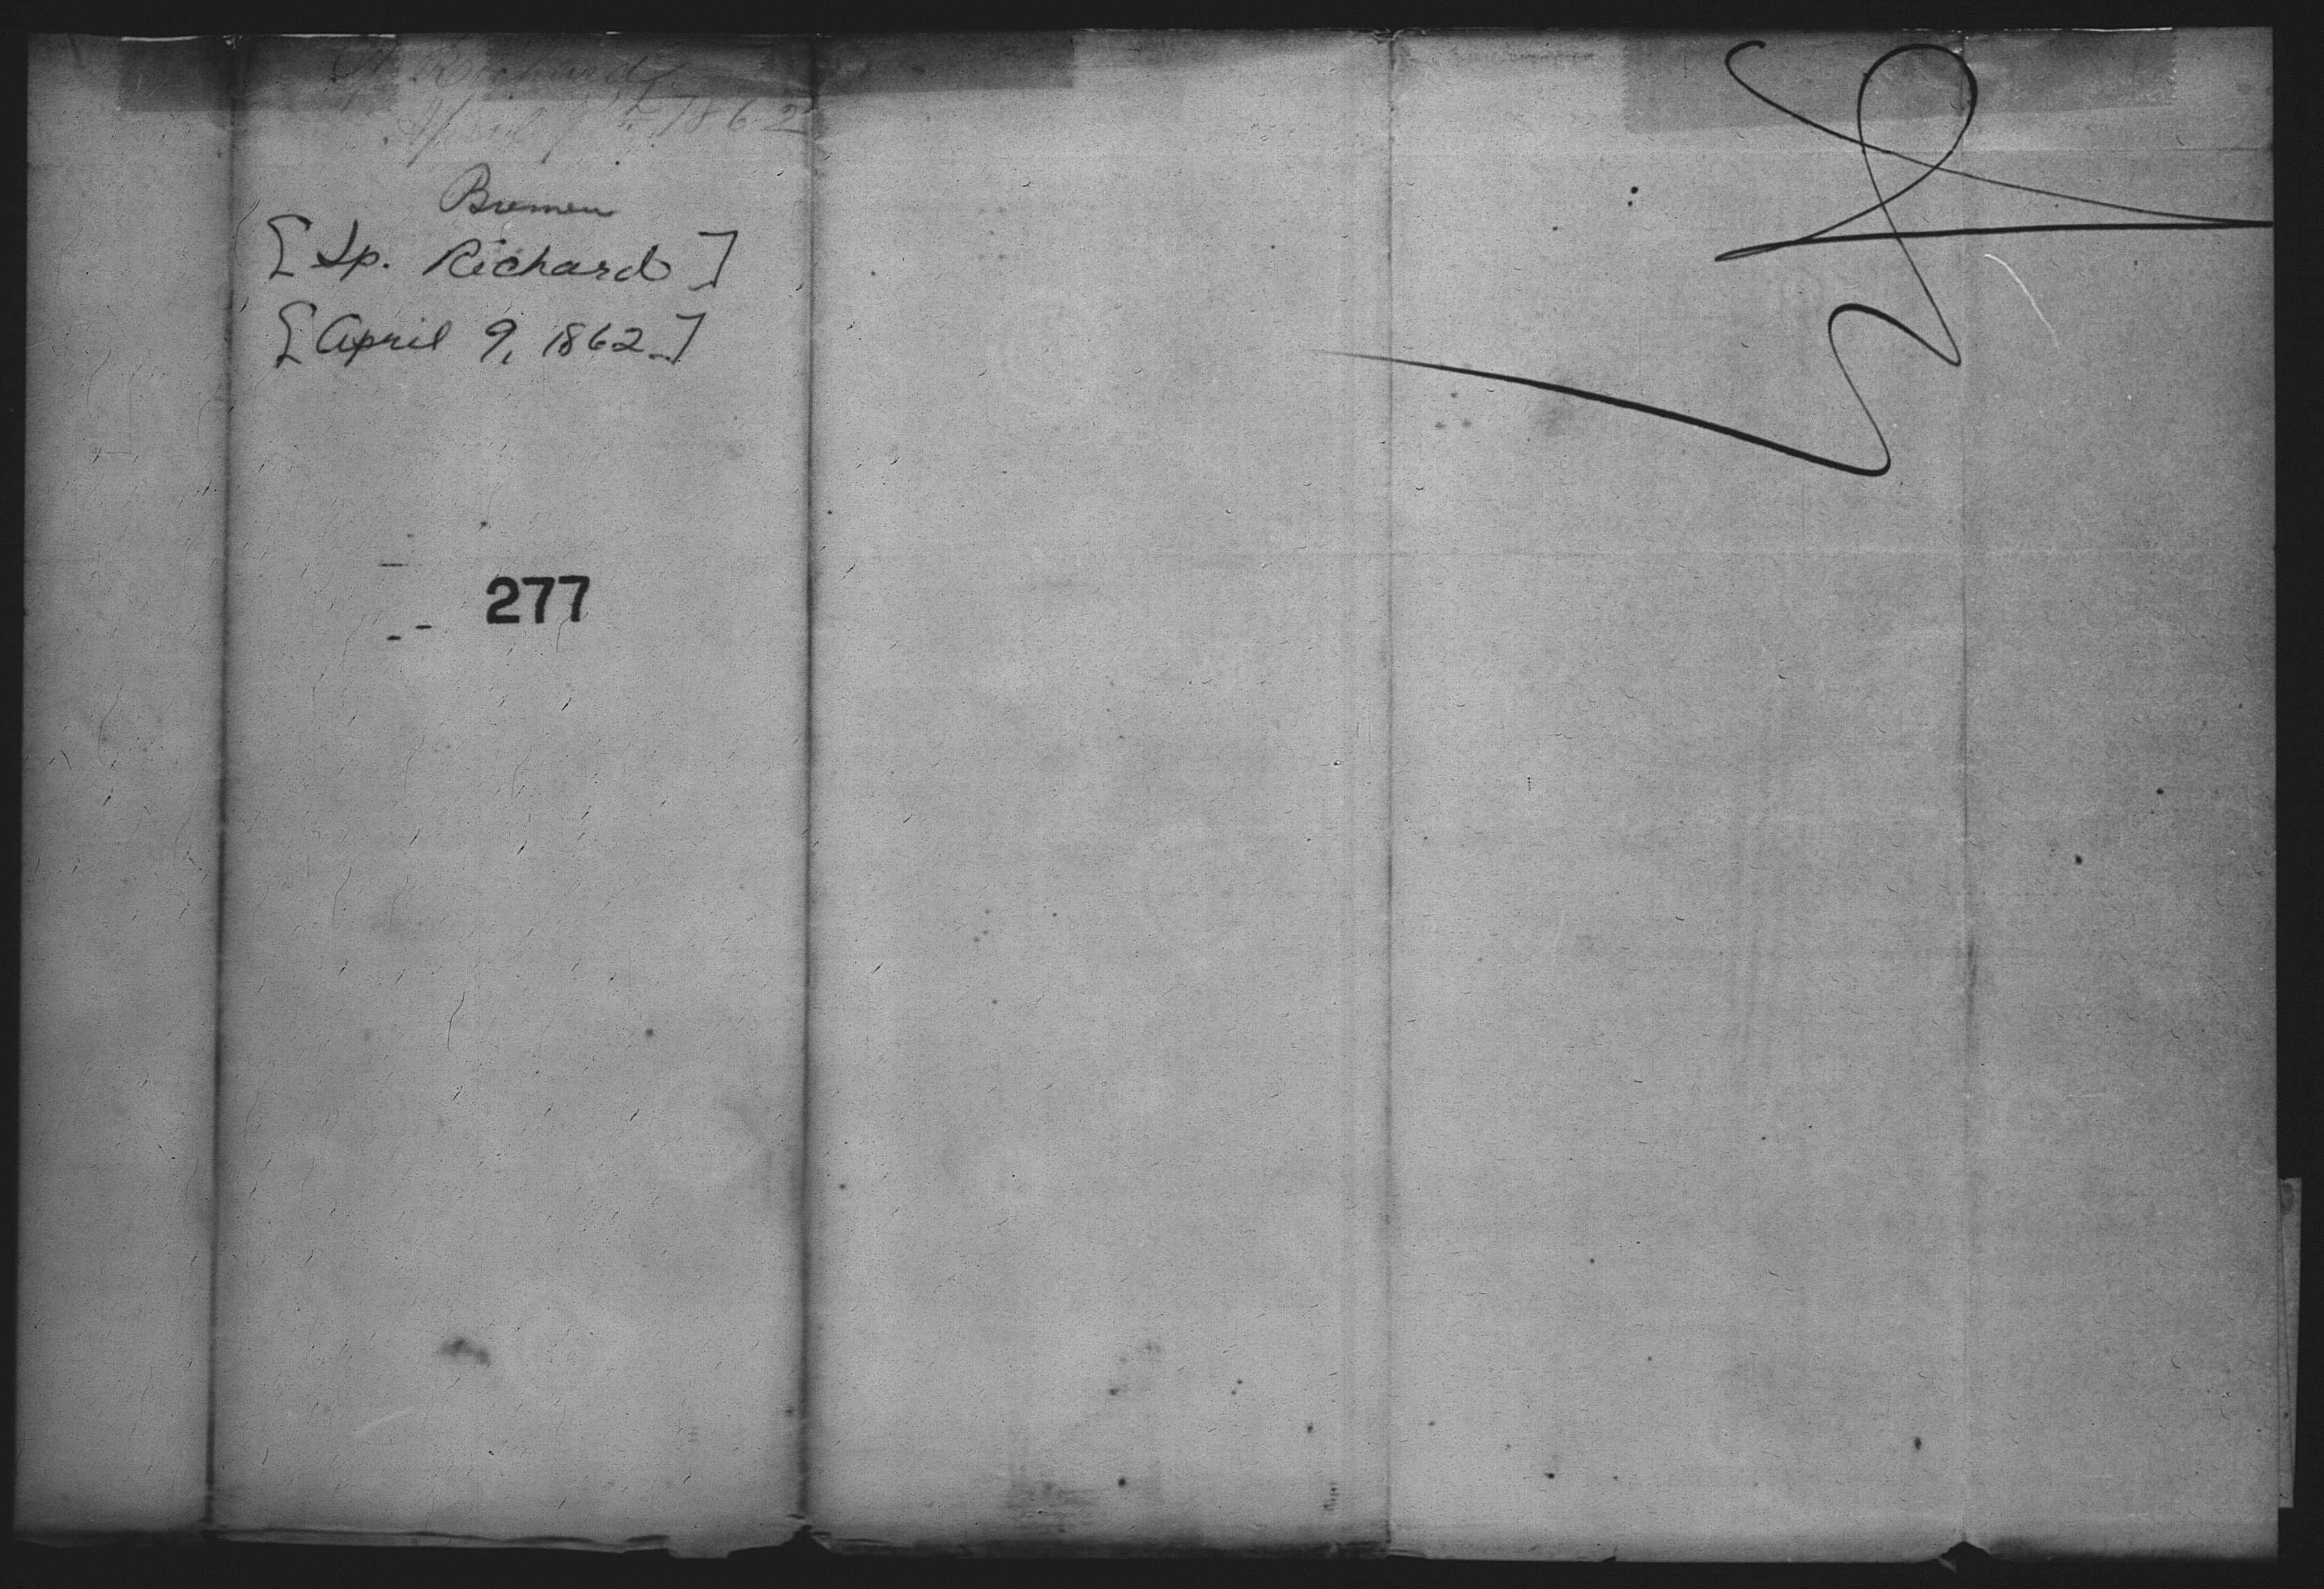 Sp. Richard
April 9th 1862
Bremen
[Sp. Richard]
[April 9, 1862]
277